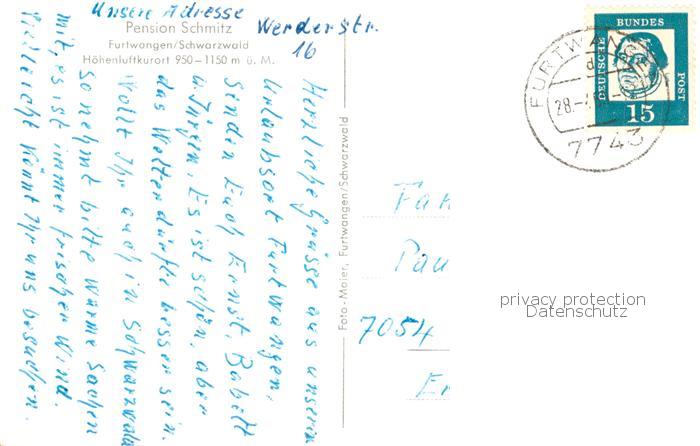 Unsere Adresse
Pension Schmitz
Werderstr.
16
Furtwangen/Schwarzwald
Höhenluftkurort 950–1150 m ü. M.
Herzliche Grüsse aus unserem
Urlaubsort Furtwangen,
senden Euch Ernst, Babett
u. Jürgen. Es ist schön, aber
das Wetter dürfte besser sein.
Wollt Ihr auch in Schwarzwald
so nehmt bitte warme Sachen
mit, es ist immer frischer Wind.
Vielleicht könnt Ihr uns besuchen.
Foto-Maier, Furtwangen/Schwarzwald
DEUTSCHE BUNDES POST
15
FURTWANGEN
28.
7743
Fam
Pau
7054
privacy protection
Datenschutz